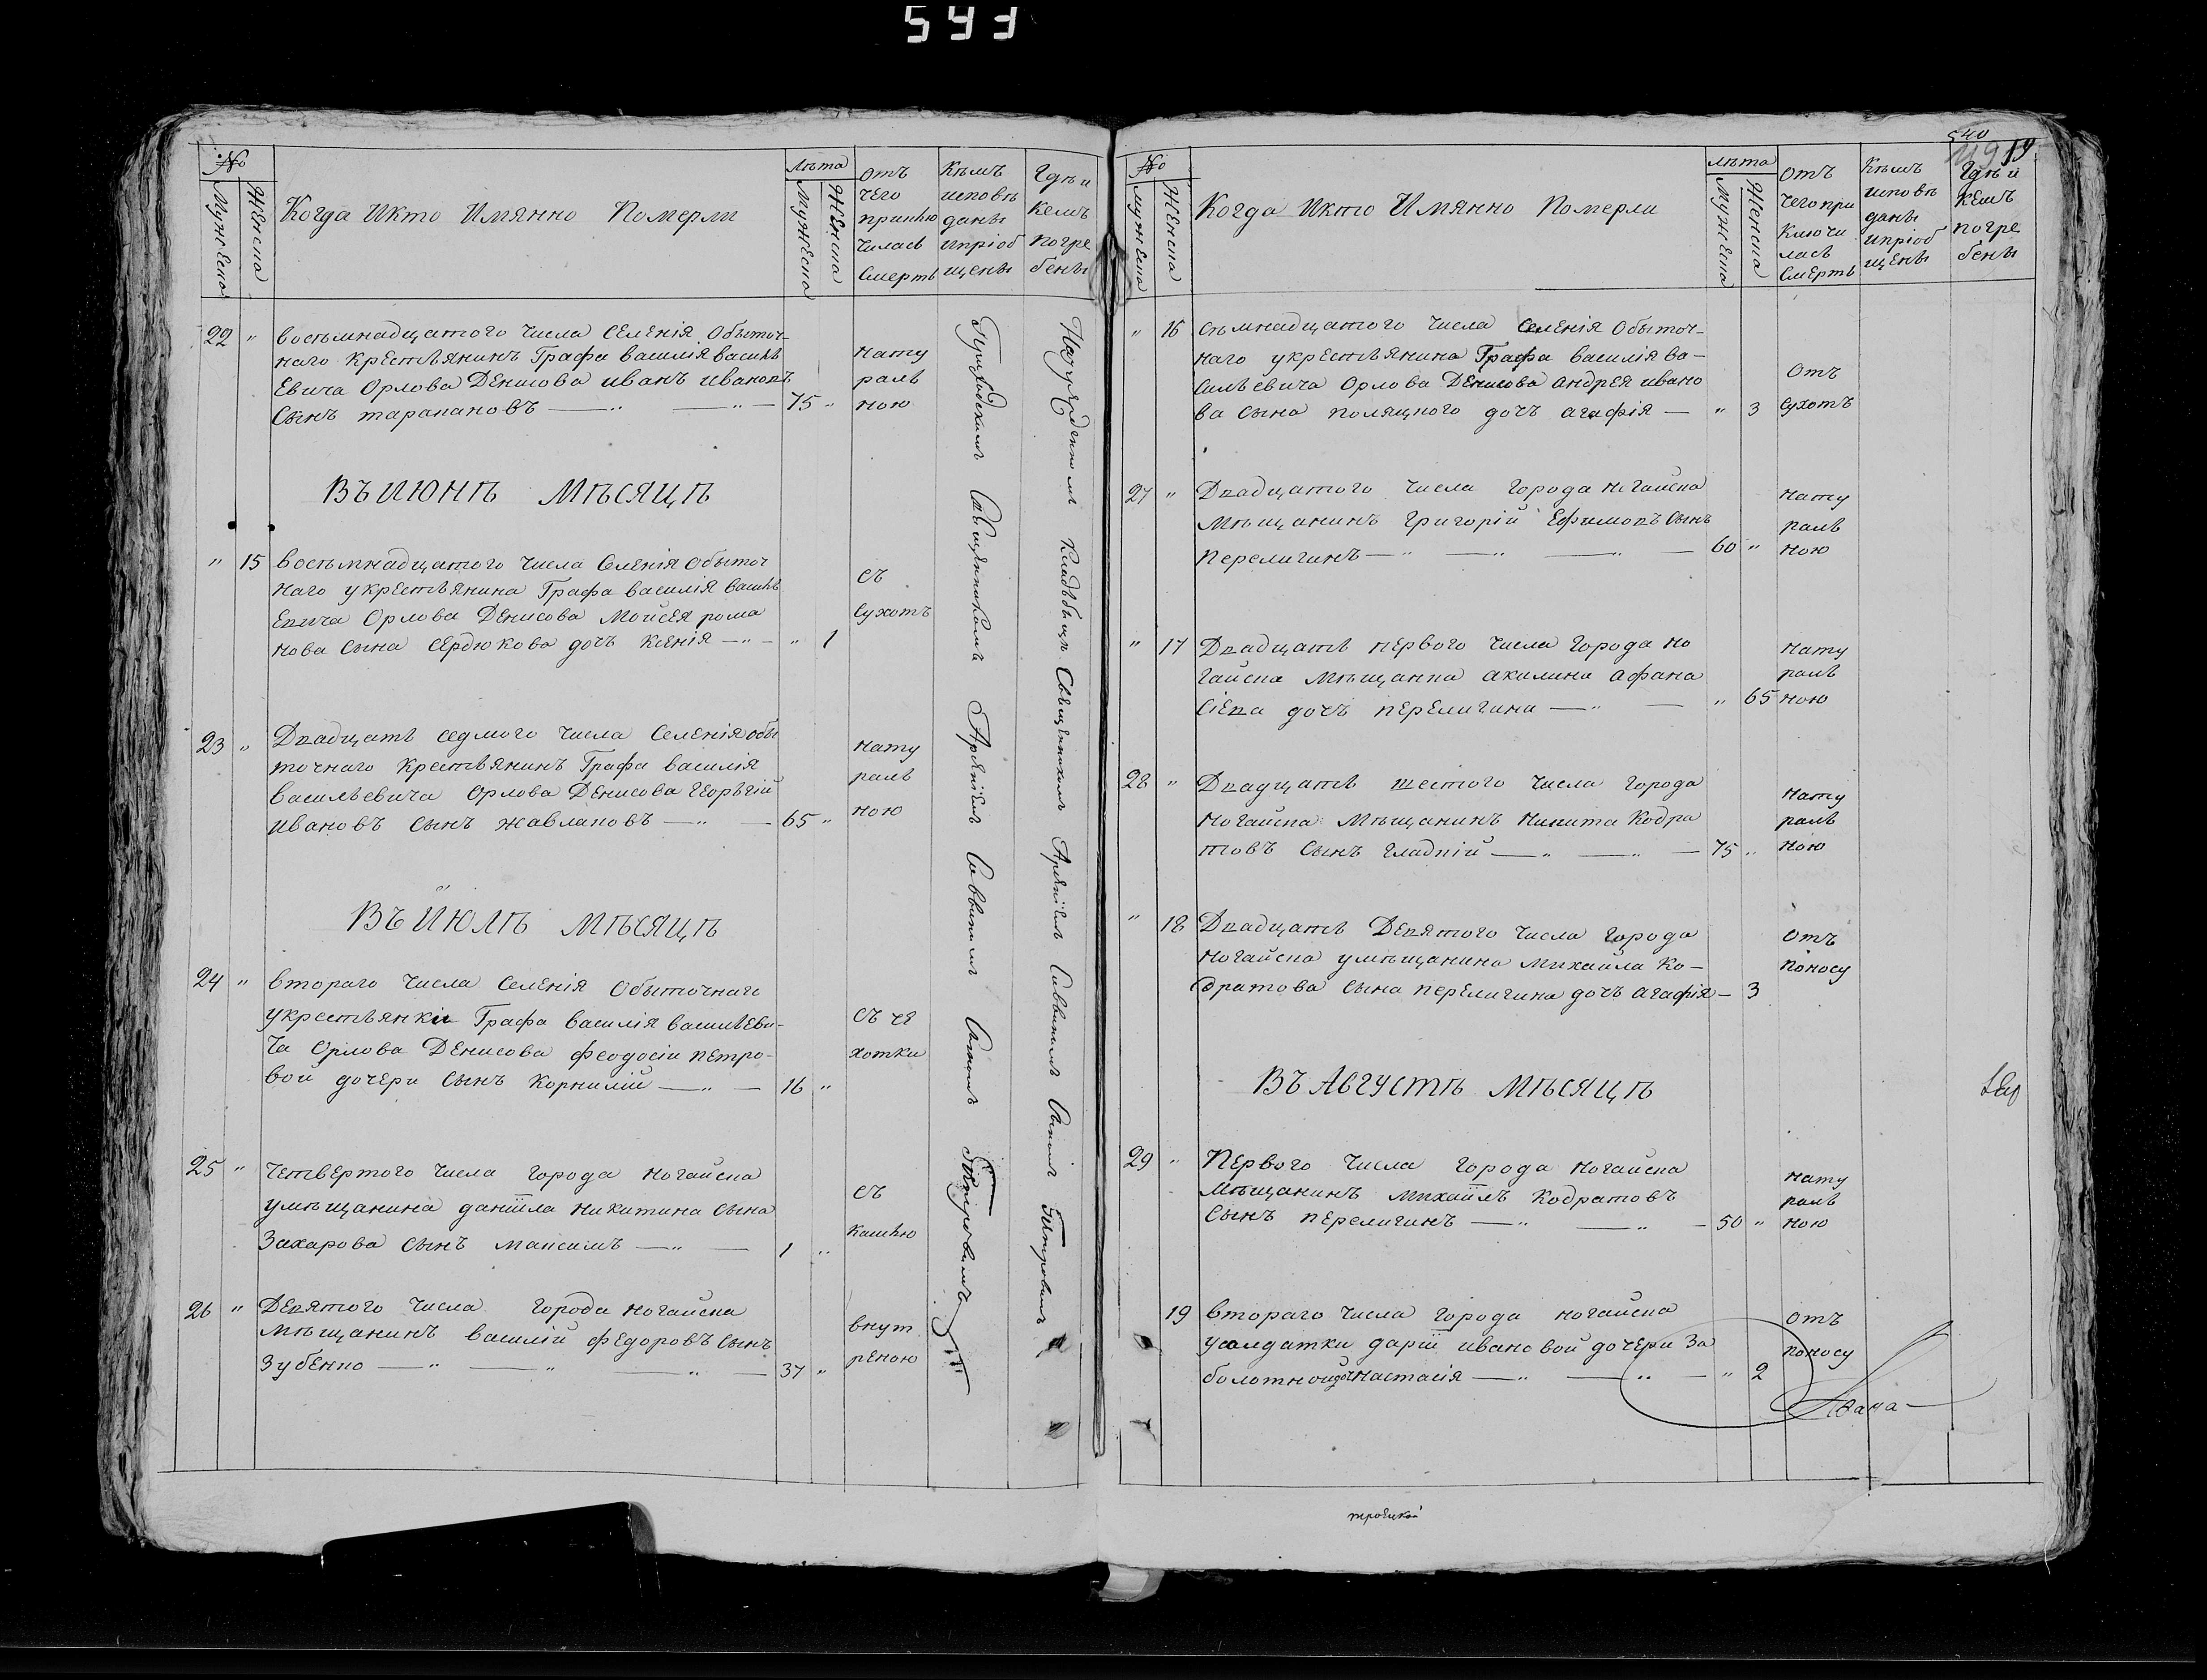 593
№
Мужеска
Женска
Когда И кто Имянно Померли
лѣта
Мужеска
Женска
Отъ
чего
приклю
чилась
Смерть
Кѣмъ
исповѣ
даны
и пріоб
щены
Гдѣ и
кемъ
погре
бены
22 „ восьмнадцатого числа Селенія Обыточ-
наго крестьянинъ Графа василія василь
Евича Орлова Денисова иванъ ивановъ
Сынъ таракановъ — „ — „ — 75 „
нату
раль
ною
Въ июнѣ мѣсяцѣ
„ 15 восьмнадцатого числа Селенія обыточ
наго укрестьянина Графа василія василь
Евича Орлова Денисова Мойсея рома
нова Сына Сердюкова дочь Ксенія — „ — „ 1
съ
Сухотъ
23 „ Двадцать седмого числа Селенія обы
точнаго крестьянинъ Графа василія
васильевича Орлова Денисова Георьгій
ивановъ Сынъ жавлановъ — „ — 65 „
нату
раль
ною
Въ июлѣ мѣсяцѣ
24 „ втораго числа Селенія Обыточнаго
укрестьянки Графа василія васильеви-
ча Орлова Денисова феодосіи петро-
вой дочери Сынъ Корнилій — „ — 16 „
съ че
хотки
25 „ Четвертого числа города ногайска
умѣщанина даниіла никитина Сына
Захарова Сынъ максимъ — „ — 1 „
съ
кашлю
26 „ Девятого числа города ногайска
мѣщанинъ василій федоровъ Сынъ
Зубенко — „ — „ — „ — 37 „
внут
реною
Священникомъ
Саввинымъ
кладбищѣ Священникомъ
Саввинымъ
540
19
№
Мужеска
Женска
Когда И кто Имянно Померли
лѣта
Мужеска
Женска
Отъ
чего при
ключи
лась
Смерть
Кѣмъ
исповѣ
даны
и пріоб
щены
Гдѣ и
кемъ
погре
бены
„ 16 Сѣмнадцатого числа Селенія Обыточ-
наго укрестьянина Графа василія ва-
сильевича Орлова Денисова андрея ивано
ва Сына поляцкого дочь агафія — „ 3
Отъ
Сухотъ
27 „ Двадцатого числа города ногайска
мѣщанинъ григорій Ефимовъ Сынъ
перелигинъ — „ — „ — „ — 60 „
нату
раль
ною
„ 17 Двадцать первого числа города но
гайска мѣщанка акилина афана
Сіева дочь перелигина — „ — „ 65
нату
раль
ною
28 „ Двадцать шестого числа города
ногайска мѣщанинъ никита кодра
товъ Сынъ гладкій — „ — „ — 75 „
нату
раль
ною
„ 18 Двадцать Девятого числа города
ногайска умѣщанина михаила ко-
дратова Сына перелигина дочь агафія — 3
отъ
поносу
Въ Августѣ мѣсяцѣ
29 „ Первого числа города ногайска
мѣщанинъ михаилъ кодратовъ
Сынъ перелигинъ — „ — „ — 50 „
нату
раль
ною
19 втораго числа города ногайска
усолдатки даріи ивановой дочери За
болотной доч настасія — „ — „ — „ 2
отъ
поносу